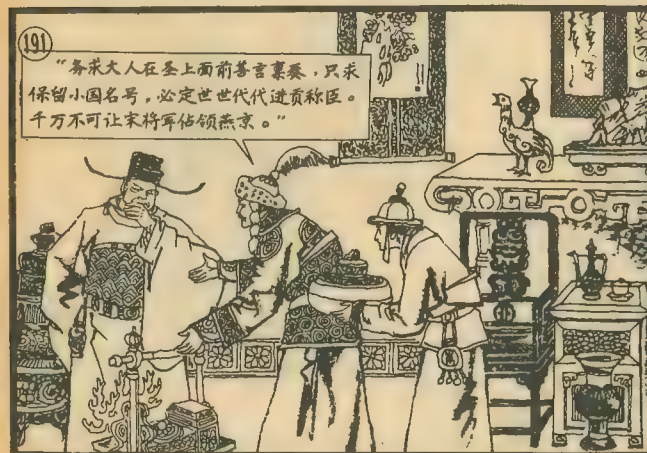 191
“务求大人在圣上面前善言禀奏，只求
保留小国名号，必定世世代代进贡称臣。
千万不可让宋将军佔领燕京。”